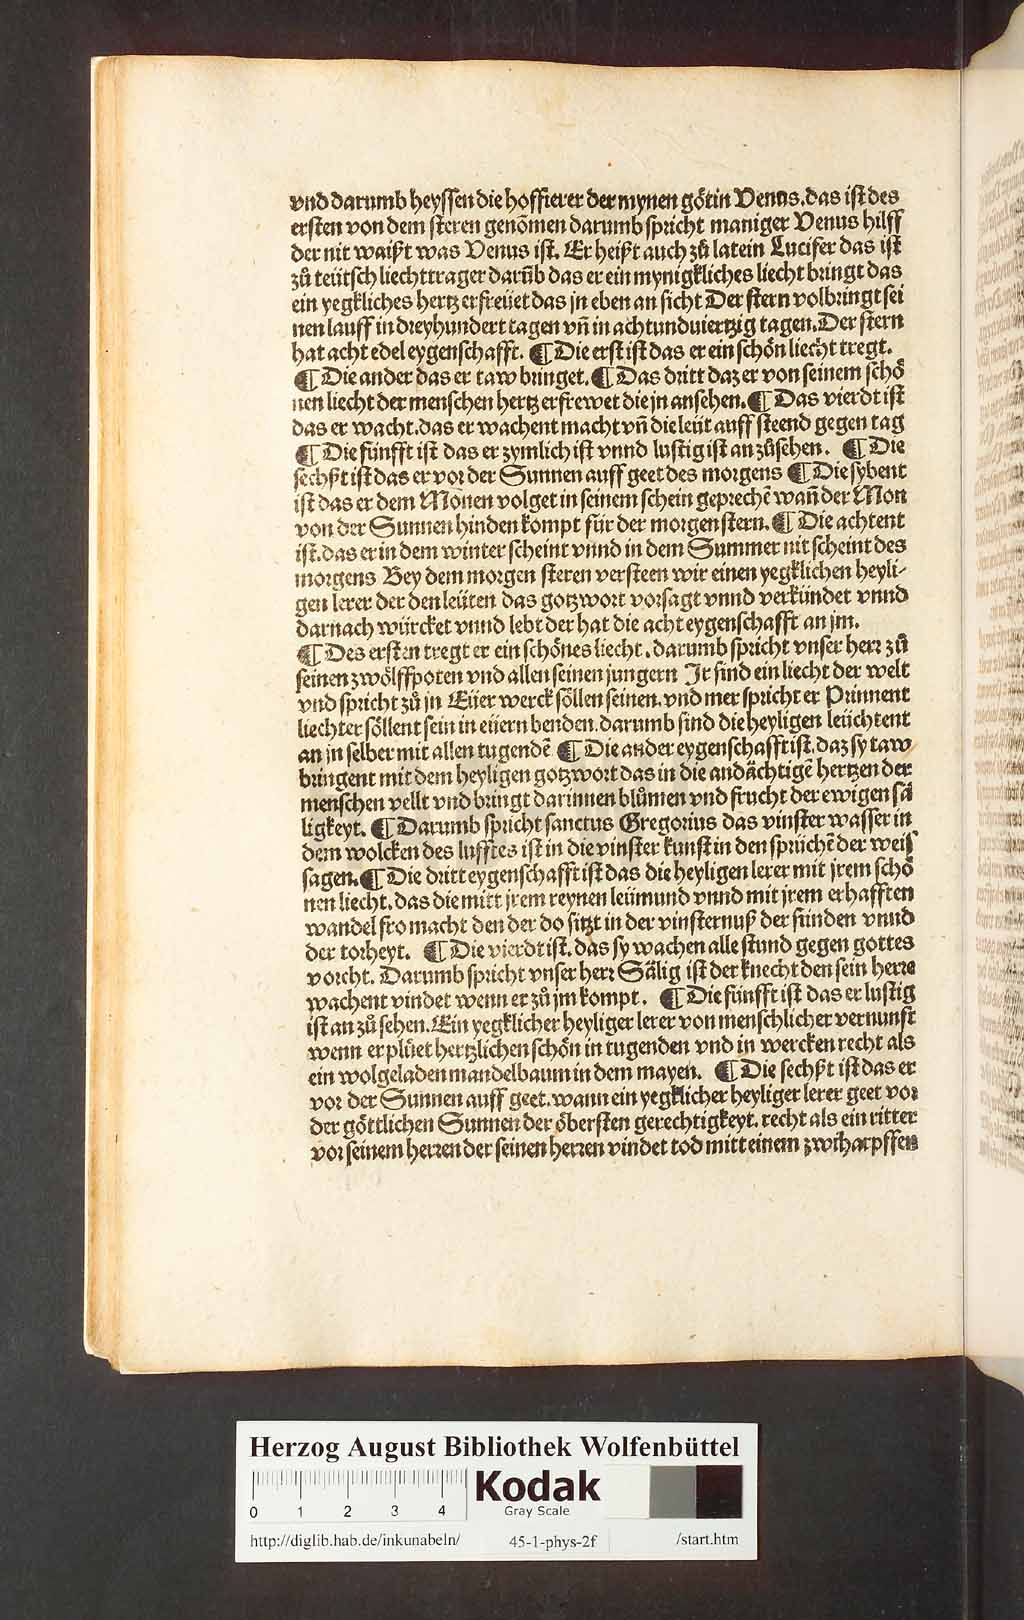 vnd darumb heyssen die hoffierer der mynen goͤtin Venus. das ist des
ersten von dem steren genōmen darumb spricht maniger Venus hilff
der nit waißt was Venus ist. Er heißt auch zuͦ latein Lucifer das ist
zuͦ teütsch liechttrager darūb das er ein mynigkliches liecht bringt das
ein yegkliches hertz erfreüet das jn eben an sicht Der stern volbringt sei
nen lauff in dreyhundert tagen vn̄ in achtunduiertzig tagen. Der stern
hat acht edel eygenschafft. ¶ Die erst ist das er ein schoͤn liecht tregt.
¶ Die ander das er taw bringet. ¶ Das dritt daz er von seinem schoͤ
nen liecht der menschen hertz erfrewet die jn ansehen. ¶ Das vierdt ist
das er wacht. das er wachent macht vn̄ die leüt auff steend gegen tag
¶ Die fünfft ist das er zymlich ist vnnd lustig ist an zuͦsehen. ¶ Die
sechßt ist das er vor der Sunnen auff geet des morgens ¶ Die sybent
ist das er dem Monen volget in seinem schein geprechē wan̄ der Mon
von der Sunnen hinden kompt für der morgen stern. ¶ Die achtent
ist. das er in dem winter scheint vnnd in dem Summer nit scheint des
morgens Bey dem morgen steren versteen wir einen yegklichen heyli-
gen lerer der den leüten das gotzwort vorsagt vnnd verkündet vnnd
darnach würcket vnnd lebt der hat die acht eygenschafft an jm.
¶ Des ersten tregt er ein schoͤnes liecht. darumb spricht vnser herr zuͦ
seinen zwoͤlffpoten vnd allen seinen jungern Jr sind ein liecht der welt
vnd spricht zuͦ jn Eüer werck soͤllen seinen. vnd mer spricht er Prinnent
liechter soͤllent sein in eüern henden. darumb sind die heyligen leüchtent
an jn selber mit allen tugendē ¶ Die ander eygenschafft ist. daz sy taw
bringent mit dem heyligen gotzwort das in die andaͤchtigē hertzen der
menschen vellt vnd bringt darinnen bluͦmen vnd frucht der ewigen saͤ
ligkeyt. ¶ Darumb spricht sanctus Gregorius das vinster wasser in
dem wolcken des lufftes ist in die vinster kunst in den sprüchē der weis
sagen. ¶ Die dritt eygenschafft ist das die heyligen lerer mit jrem schoͤ
nen liecht. das die mitt jrem reynen leümund vnnd mit jrem erhafften
wandel fro macht den der do sitzt in der vinsternuß der sünden vnnd
der torheyt. ¶ Die vierdt ist. das sy wachen alle stund gegen gottes
vorcht. Darumb spricht vnser herr Saͤlig ist der knecht den sein herre
wachent vindet wenn er zuͦ jm kompt. ¶ Die fünfft ist das er lustig
ist an zuͦ sehen. Ein yegklicher heyliger lerer von menschlicher vernunft
wenn er pluͤet hertzlichen schoͤn in tugenden vnd in wercken recht als
ein wolgeladen mandelbaum in dem mayen. ¶ Die sechßt ist das er
vor der Sunnen auff geet. wann ein yegklicher heyliger lerer geet vor
der goͤttlichen Sunnen der oͤbersten gerechtigkeyt. recht als ein ritter
vor seinem herren der seinen herren vindet tod mitt einem zwiharpffen
Herzog August Bibliothek Wolfenbüttel
0 1 2 3 4
Kodak
Gray Scale
http://diglib.hab.de/inkunabeln/ 45-1-phys-2f /start.htm